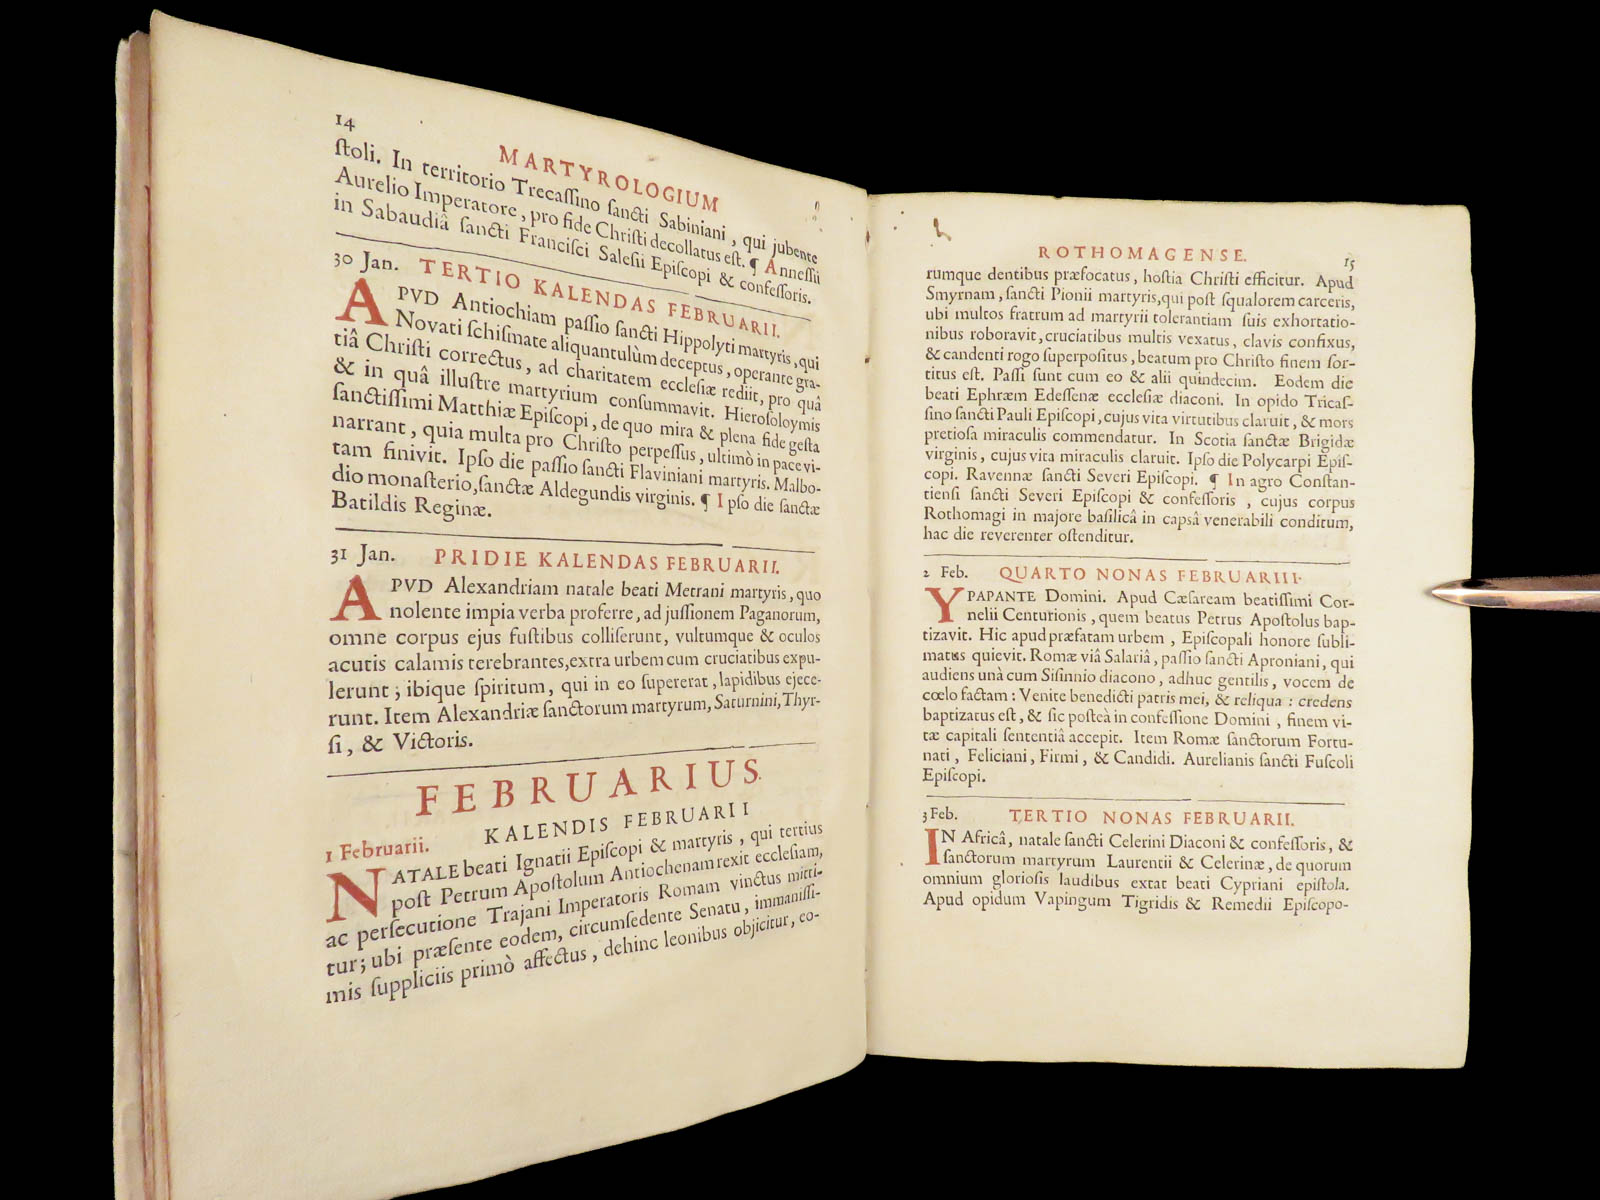 14
MARTYROLOGIUM
ſtoli. In territorio Trecaſſino ſancti Sabiniani, qui jubente
Aurelio Imperatore, pro fide Chriſti decollatus eſt. ¶ Anneſſii
in Sabaudiâ ſancti Franciſci Saleſii Epiſcopi & confeſſoris.
30 Jan. TERTIO KALENDAS FEBRUARII.
APVD Antiochiam paſſio ſancti Hippolyti martyris, qui
Novati ſchiſmate aliquantulùm deceptus, operante gra-
tiâ Chriſti correctus, ad charitatem eccleſiæ rediit, pro quâ
& in quâ illuſtre martyrium conſummavit. Hieroſoloymis
ſanctiſſimi Matthiæ Epiſcopi, de quo mira & plena fide geſta
narrant, quia multa pro Chriſto perpeſſus, ultimò in pace vi-
tam finivit. Ipſo die paſſio ſancti Flaviniani martyris. Malbo-
dio monaſterio, ſanctæ Aldegundis virginis. ¶ Ipſo die ſanctæ
Batildis Reginæ.
31 Jan. PRIDIE KALENDAS FEBRUARII.
APVD Alexandriam natale beati Metrani martyris, quo
nolente impia verba proferre, ad juſſionem Paganorum,
omne corpus ejus fuſtibus colliſerunt, vultumque & oculos
acutis calamis terebrantes, extra urbem cum cruciatibus expu-
lerunt; ibique ſpiritum, qui in eo ſupererat, lapidibus ejece-
runt. Item Alexandriæ ſanctorum martyrum, Saturnini, Thyr-
ſi, & Victoris.
FEBRUARIUS.
KALENDIS FEBRUARII
1 Februarii.
NATALE beati Ignatii Epiſcopi & martyris, qui tertius
poſt Petrum Apoſtolum Antiochenam rexit eccleſiam,
ac perſecutione Trajani Imperatoris Romam vinctus mitti-
tur; ubi præſente eodem, circumſedente Senatu, immaniſſi-
mis ſuppliciis primò affectus, dehinc leonibus objicitur, eo-
ROTHOMAGENSE.
15
rumque dentibus præfocatus, hoſtia Chriſti efficitur. Apud
Smyrnam, ſancti Pionii martyris, qui poſt ſqualorem carceris,
ubi multos fratrum ad martyrii tolerantiam ſuis exhortatio-
nibus roboravit, cruciatibus multis vexatus, clavis confixus,
& candenti rogo ſuperpoſitus, beatum pro Chriſto finem ſor-
titus eſt. Paſſi ſunt cum eo & alii quindecim. Eodem die
beati Ephræm Edeſſenæ eccleſiæ diaconi. In opido Tricaſ-
ſino ſancti Pauli Epiſcopi, cujus vita virtutibus claruit, & mors
pretioſa miraculis commendatur. In Scotia ſanctæ Brigidæ
virginis, cujus vita miraculis claruit. Ipſo die Polycarpi Epiſ-
copi. Ravennæ ſancti Severi Epiſcopi. ¶ In agro Conſtan-
tienſi ſancti Severi Epiſcopi & confeſſoris, cujus corpus
Rothomagi in majore baſilicâ in capsâ venerabili conditum,
hac die reverenter oſtenditur.
2 Feb. QUARTO NONAS FEBRUARIII.
YPAPANTE Domini. Apud Cæſaream beatiſſimi Cor-
nelii Centurionis, quem beatus Petrus Apoſtolus bap-
tizavit. Hic apud præfatam urbem, Epiſcopali honore ſubli-
matus quievit. Romæ viâ Salariâ, paſſio ſancti Aproniani, qui
audiens unà cum Siſinnio diacono, adhuc gentilis, vocem de
cœlo factam: Venite benedicti patris mei, & reliqua: credens
baptizatus eſt, & ſic poſteà in confeſſione Domini, finem vi-
tæ capitali ſententiâ accepit. Item Romæ ſanctorum Fortu-
nati, Feliciani, Firmi, & Candidi. Aurelianis ſancti Fuſcoli
Epiſcopi.
3 Feb. TERTIO NONAS FEBRUARII.
IN Africâ, natale ſancti Celerini Diaconi & confeſſoris, &
ſanctorum martyrum Laurentii & Celerinæ, de quorum
omnium glorioſis laudibus extat beati Cypriani epiſtola.
Apud opidum Vapingum Tigridis & Remedii Epiſcopo-